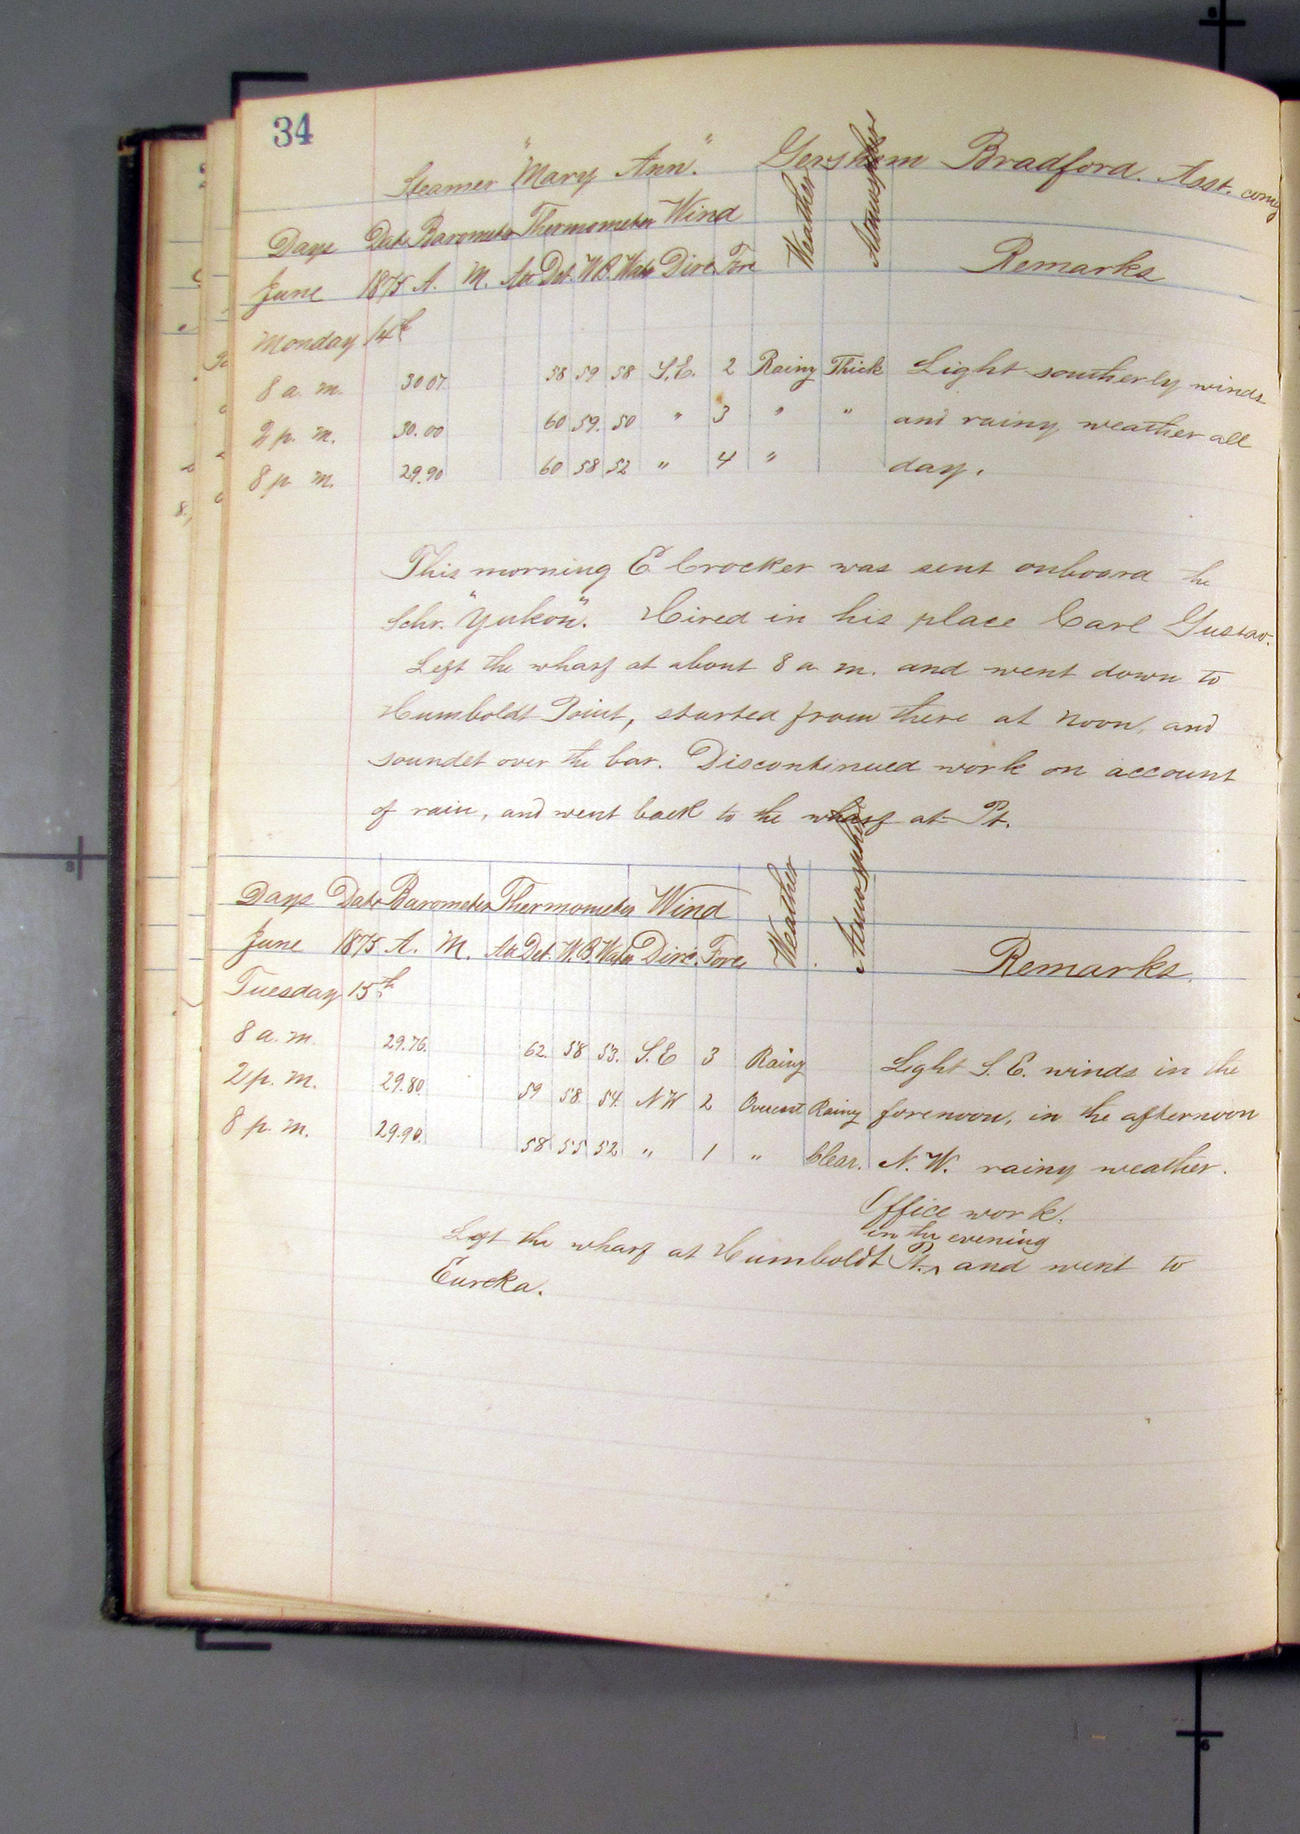 34
Steamer "Mary Ann." Gershom Bradford. Asst. comg
Days Date Barometer Thermometer Wind Weather Atmosphere Remarks
June 1875 A. M. Att Det. W.B. Water Direc. Force
Monday 14th
8 a. m. 30 07 58 59 58 S.E. 2 Rainy Thick Light southerly winds
2 p. m. 30.00 60 59. 50 " 3 " " and rainy weather all
8 p. m. 29.90 60 58 52 " 4 " day.
This morning E Crocker was sent onboard the
Schr. "Yukon". Hired in his place Carl Gustav.
Left the wharf at about 8 a. m. and went down to
Humboldt Point, started from there at noon, and
soundet over the bar. Discontinued work on account
of rain, and went back to the wharf at Pt.
Days Date Barometer Thermometer Wind Weather Atmosphere Remarks.
June 1875 A. M. Att Det. W.B. Water Direc. Force
Tuesday 15th
8 a. m. 29.76. 62. 58 53. S. E 3 Rainy Light S. E. winds in the
2 p. m. 29.80 59 58 54. N W 2 Overcast Rainy forenoon, in the afternoon
8 p. m. 29.90. 58 55 52 " 1 " Clear. N. W. rainy weather.
Office work.
in the evening
Left the wharf at Humboldt Pt. ^ and went to
Eureka.